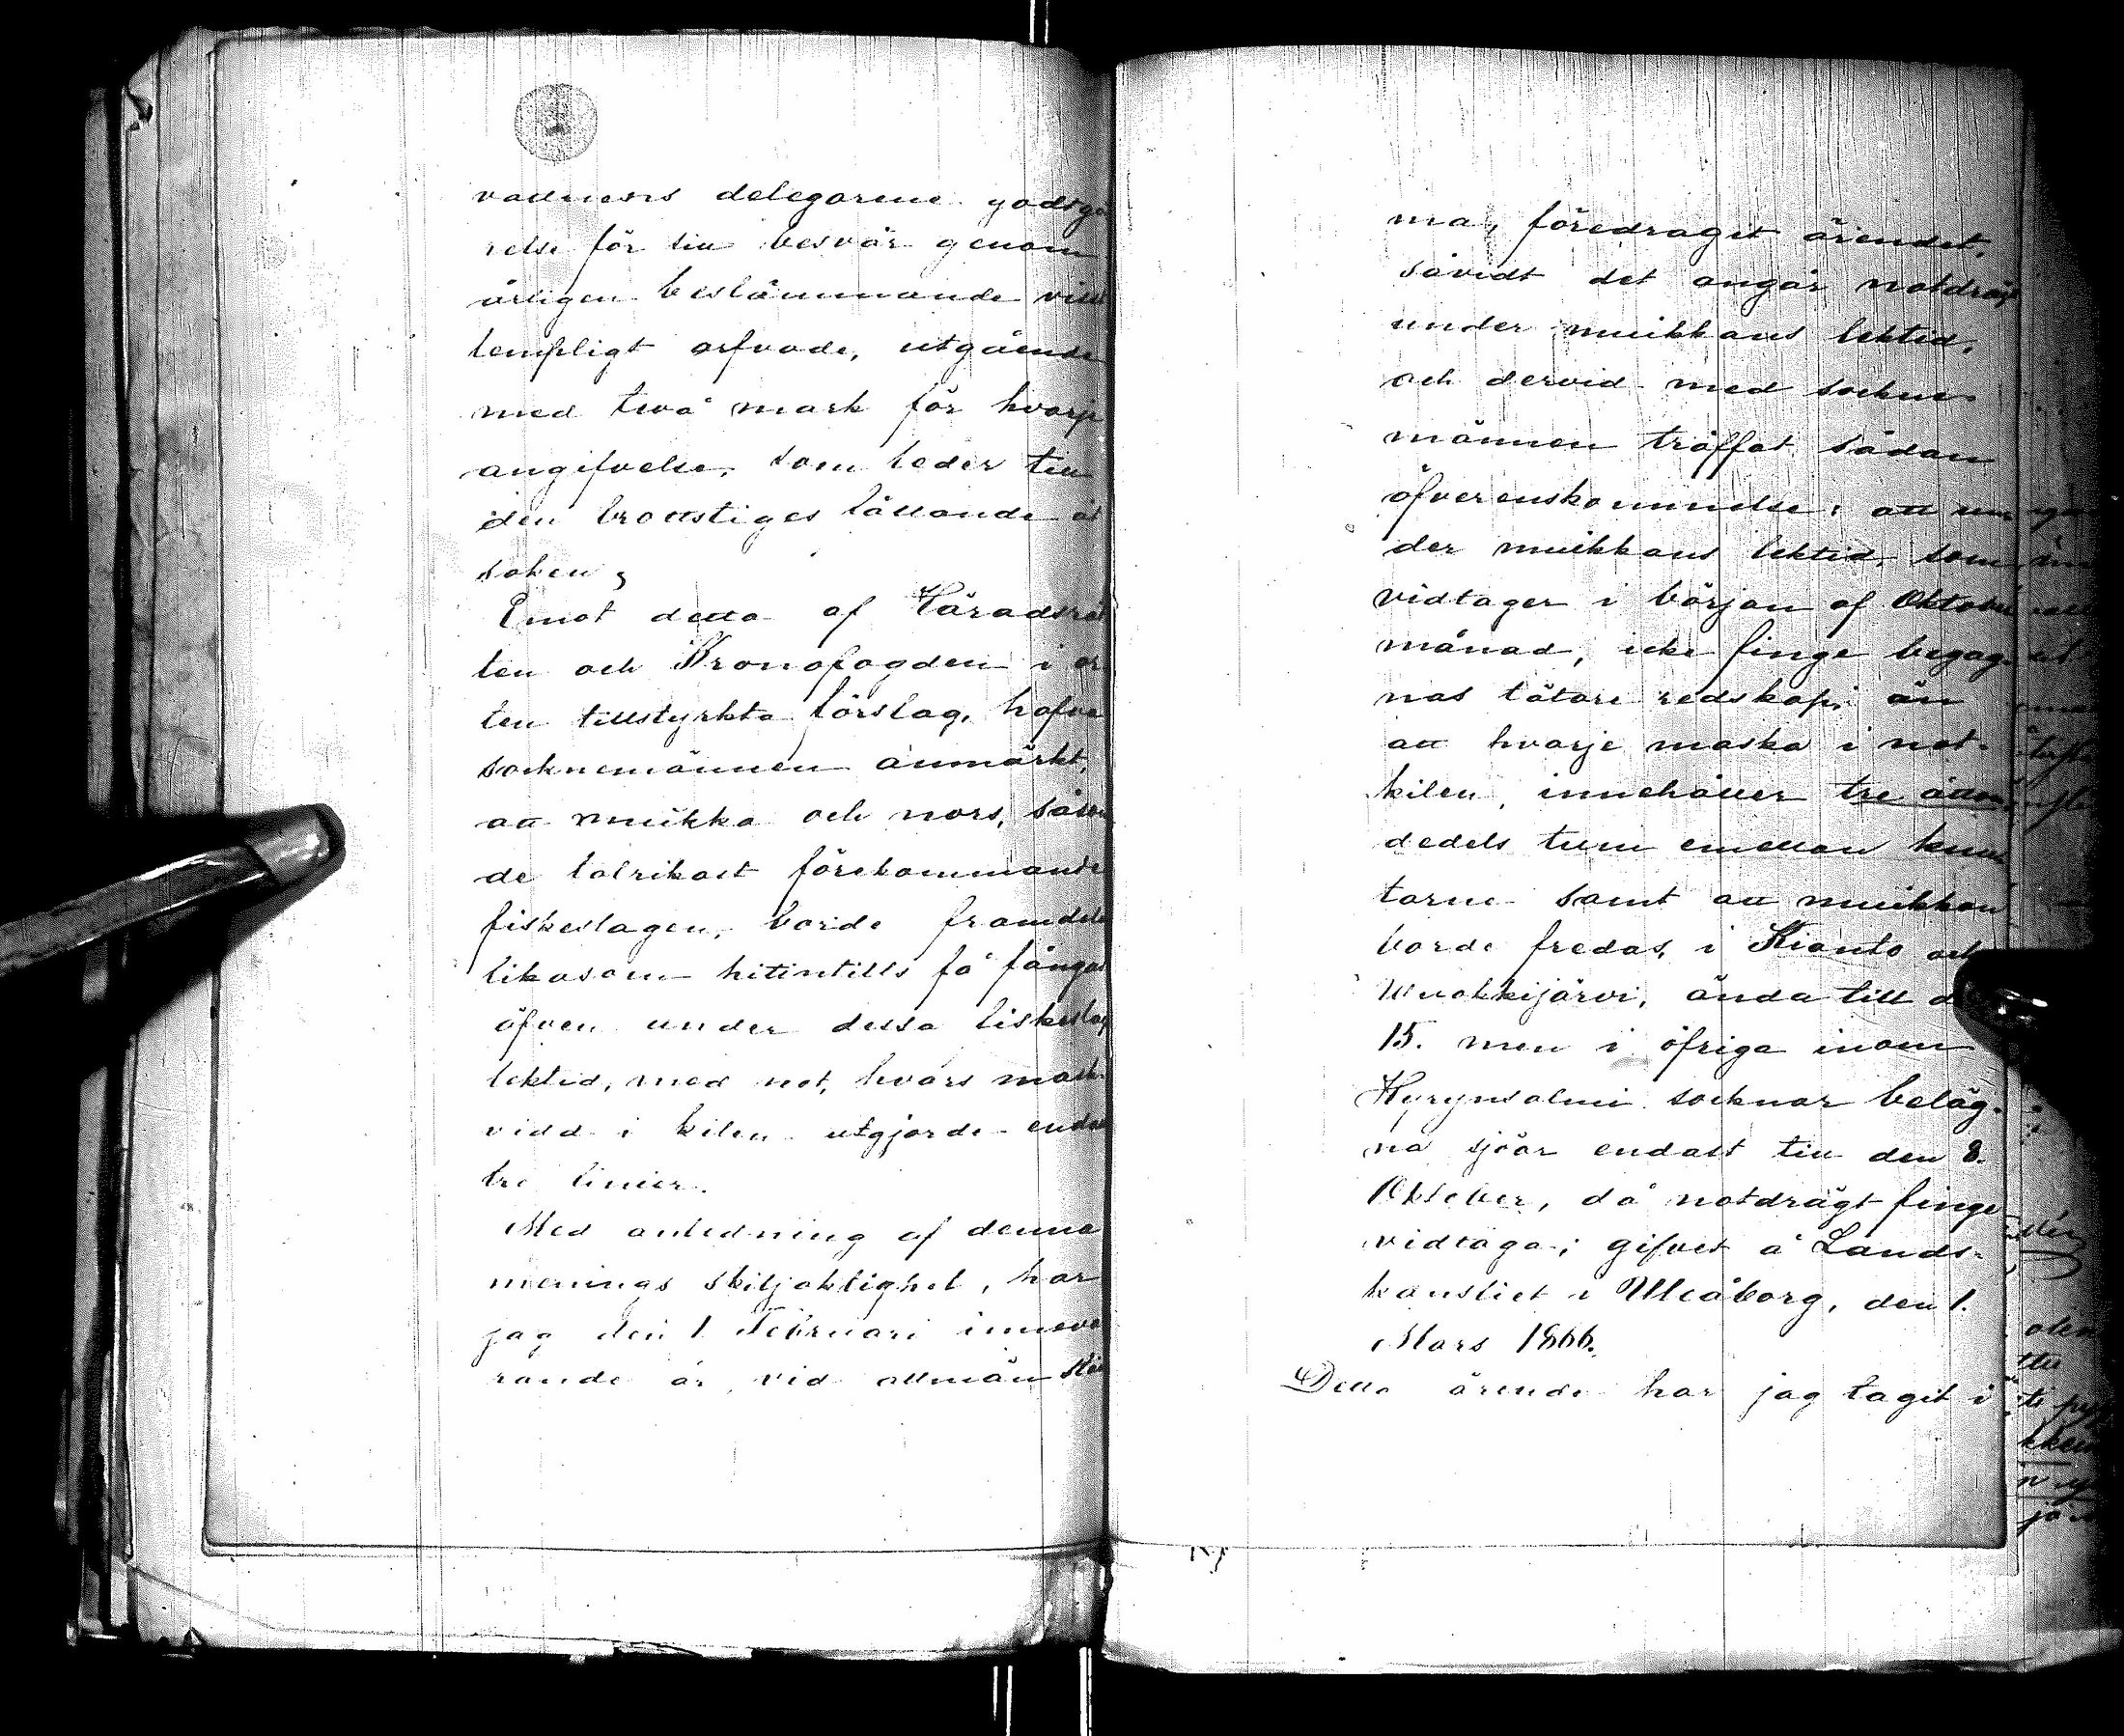 vattnens delegarene godtgö
relse för sin besvär genom
årligen bestämmande visst
lempligt arfvode, utgående
med två mark för hvarje
angifvelse, som leder till
den brottsliges fällande åt
saken;
Emot detta af Häradsrät
ten och Kronofogden i or
ten tillstyrkta förslag, hafva
socknemännen anmärkt,
att muikka och nors, såsom
de talrikast förekommande
fiskeslagen, borde framdeles
likasom hitintills få fångas
äfven under dessa fiskeslags
lektid, med not, hvars mask-
vidd i kilen utgjorde endast
tre linier.
Med anledning af denna
menings skiljaktighet, har
jag den 1 Februari inneva
rande år vid allmän stäm
ma, föredraget ärendet,
såvidt det angår notdrägt
under muikkans lektid,
och dervid med sockne
männen träffat sådan
öfverenskommelse: att un
der muikkans lektid, som
vidtager i början af Oktober
månad, icke finge begag-
nas tätare redskap, än
att hvarje maska i not-
kilen, innehåller tre åtton
dedels tum emellan knu
tarne samt att muikkan
borde fredas, i Kianto och
Wuokkijärvi, ända till d
15. men i öfriga inom
Hyrynsalmi socknar beläg-
na sjöar endast till den 8.
Oktober, då notdrägt finge
vidtaga; gifvet å Lands-
kansliet i Uleåborg, den 1.
Mars 1866.
Detta ärende har jag tagit i